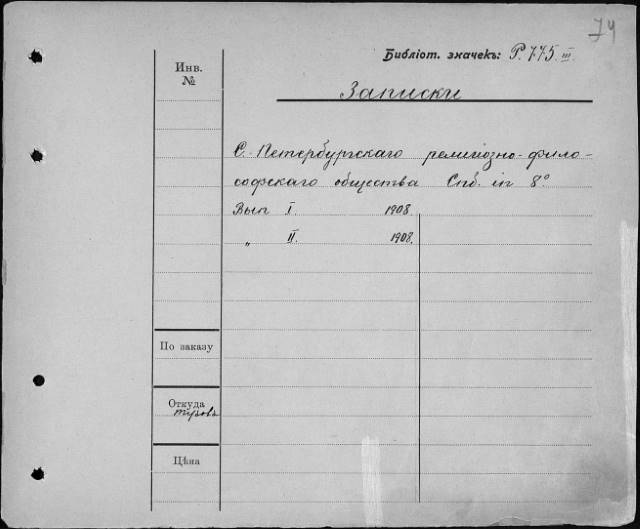 74
Библіот. значекъ: Р.775.III.
Инв. №
Записки
С.-Петербургскаго религіозно-фило-
софскаго общества Спб. in 8°
Вып I. 1908.
„ II. 1908.
По заказу
Откуда
Цѣна